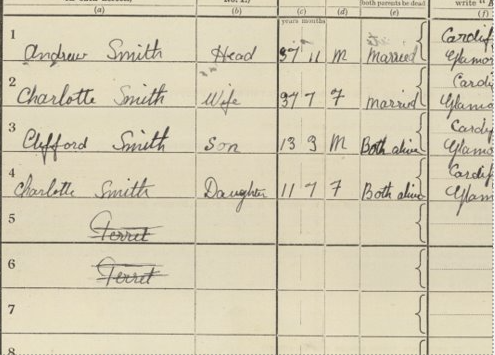 both parents be dead
write "
(a) (b) (c) (d) (e) (f)
years months
1 Andrew Smith Head 37 11 M Married Cardif
Glamo
2 Charlotte Smith Wife 37 7 F Married Cardi
Glamo
3 Clifford Smith Son 13 3 M Both alive Cardif
Glamo
4 Charlotte Smith Daughter 11 7 F Both alive Cardif
Glam
5 Terret
6 Terret
7
8